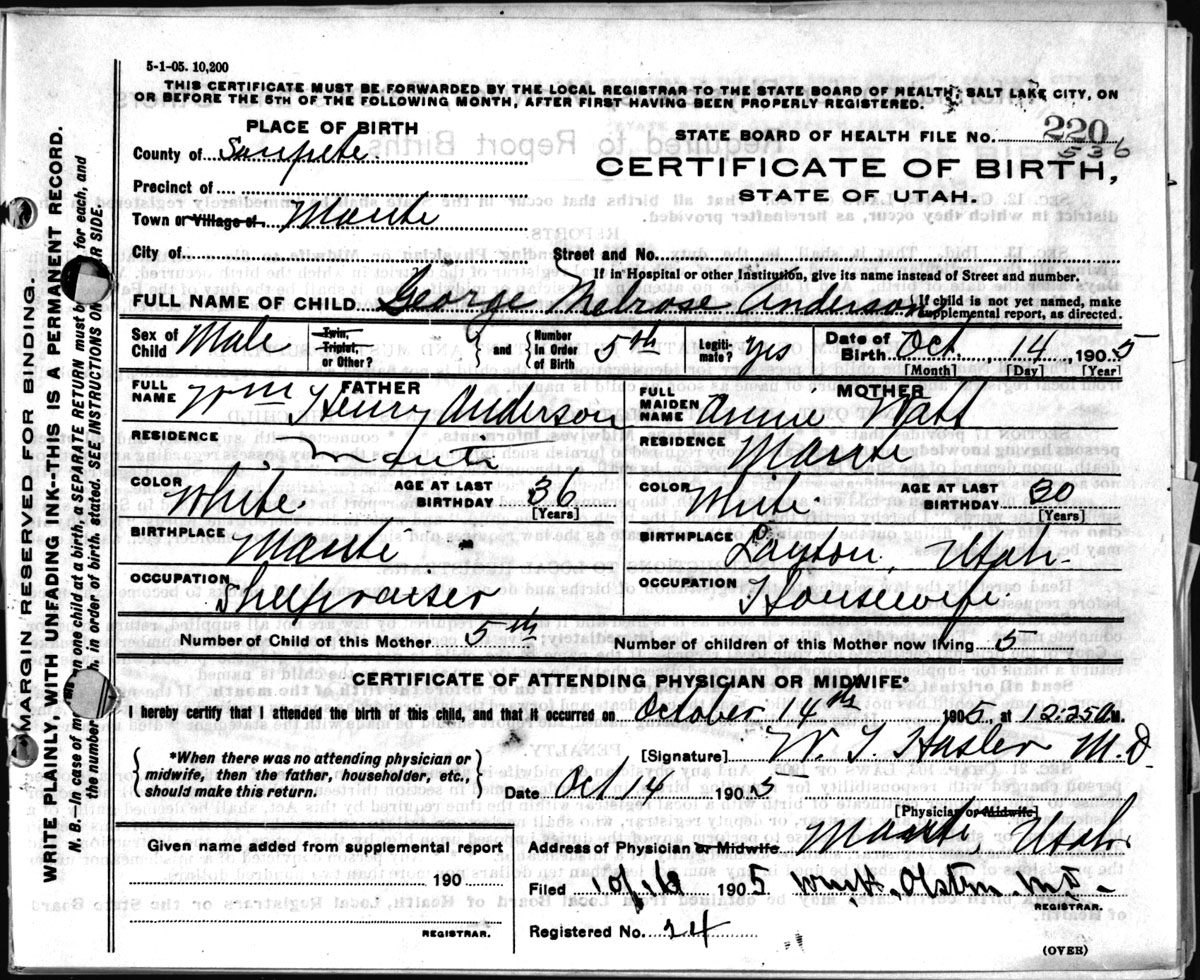 5-1-05. 10,200
THIS CERTIFICATE MUST BE FORWARDED BY THE LOCAL REGISTRAR TO THE STATE BOARD OF HEALTH, SALT LAKE CITY, ON
OR BEFORE THE 5TH OF THE FOLLOWING MONTH, AFTER FIRST HAVING BEEN PROPERLY REGISTERED.
PLACE OF BIRTH
County of Sanpete
Precinct of
Town or Village of Manti
City of
STATE BOARD OF HEALTH FILE NO. 220
536
CERTIFICATE OF BIRTH,
STATE OF UTAH.
Street and No.
If in Hospital or other Institution, give its name instead of Street and number.
FULL NAME OF CHILD George Melrose Anderson
If child is not yet named, make
supplemental report, as directed.
Sex of Child Male
Twin, Triplet, or Other?
and
Number In Order of Birth 5th
Legiti-mate? Yes
Date of Birth Oct 14, 1905
[Month] [Day] [Year]
FATHER
FULL NAME Wm Henry Anderson
RESIDENCE Manti
COLOR White
AGE AT LAST BIRTHDAY 36
[Years]
BIRTHPLACE Manti
OCCUPATION
MOTHER
FULL MAIDEN NAME Annie Watt
RESIDENCE Manti
COLOR White
AGE AT LAST BIRTHDAY 30
[Years]
BIRTHPLACE Layton, Utah
OCCUPATION Housewife
Number of Child of this Mother 5th
Number of children of this Mother now living 5
CERTIFICATE OF ATTENDING PHYSICIAN OR MIDWIFE*
I hereby certify that I attended the birth of this child, and that it occurred on October 14th 1905, at 12:25 A.M.
*When there was no attending physician or
midwife, then the father, householder, etc.,
should make this return.
[Signature] W. T. Hasler M.D.
Date Oct 14 1905
[Physician or Midwife]
Address of Physician or Midwife Manti, Utah
Given name added from supplemental report
190
REGISTRAR.
Filed 10/16 1905
REGISTRAR.
Registered No. 24
(OVER)
MARGIN RESERVED FOR BINDING.
WRITE PLAINLY, WITH UNFADING INK--THIS IS A PERMANENT RECORD.
N. B.--In case of more than one child at a birth, a SEPARATE RETURN must be made for each, and
the number of each, in order of birth, stated. SEE INSTRUCTIONS ON OTHER SIDE.